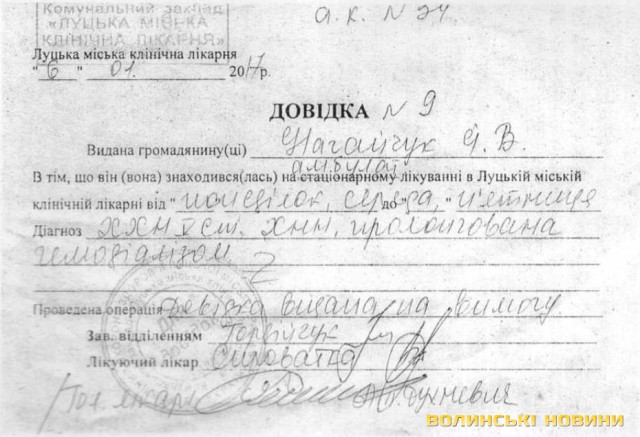 Комунальний заклад
«ЛУЦЬКА МІСЬКА
КЛІНІЧНА ЛІКАРНЯ»
а.к. N 24
Луцька міська клінічна лікарня
"6" 01. 2017р.
ДОВІДКА N 9
Видана громадянину(ці) Нагайчук Я. В.
амбулат
В тім, що він (вона) знаходився(лась) на стаціонарному лікуванні в Луцькій міській
клінічній лікарні від " понеділок, середа, до " , " п'ятниця
Діагноз ХХН V ст. ХНН, пролонгована
гемодіалізом
Проведена операція Довідка видана на вимогу
Зав. відділенням
Лікуючий лікар Сироватка
ВОЛИНСЬКІ НОВИНИ